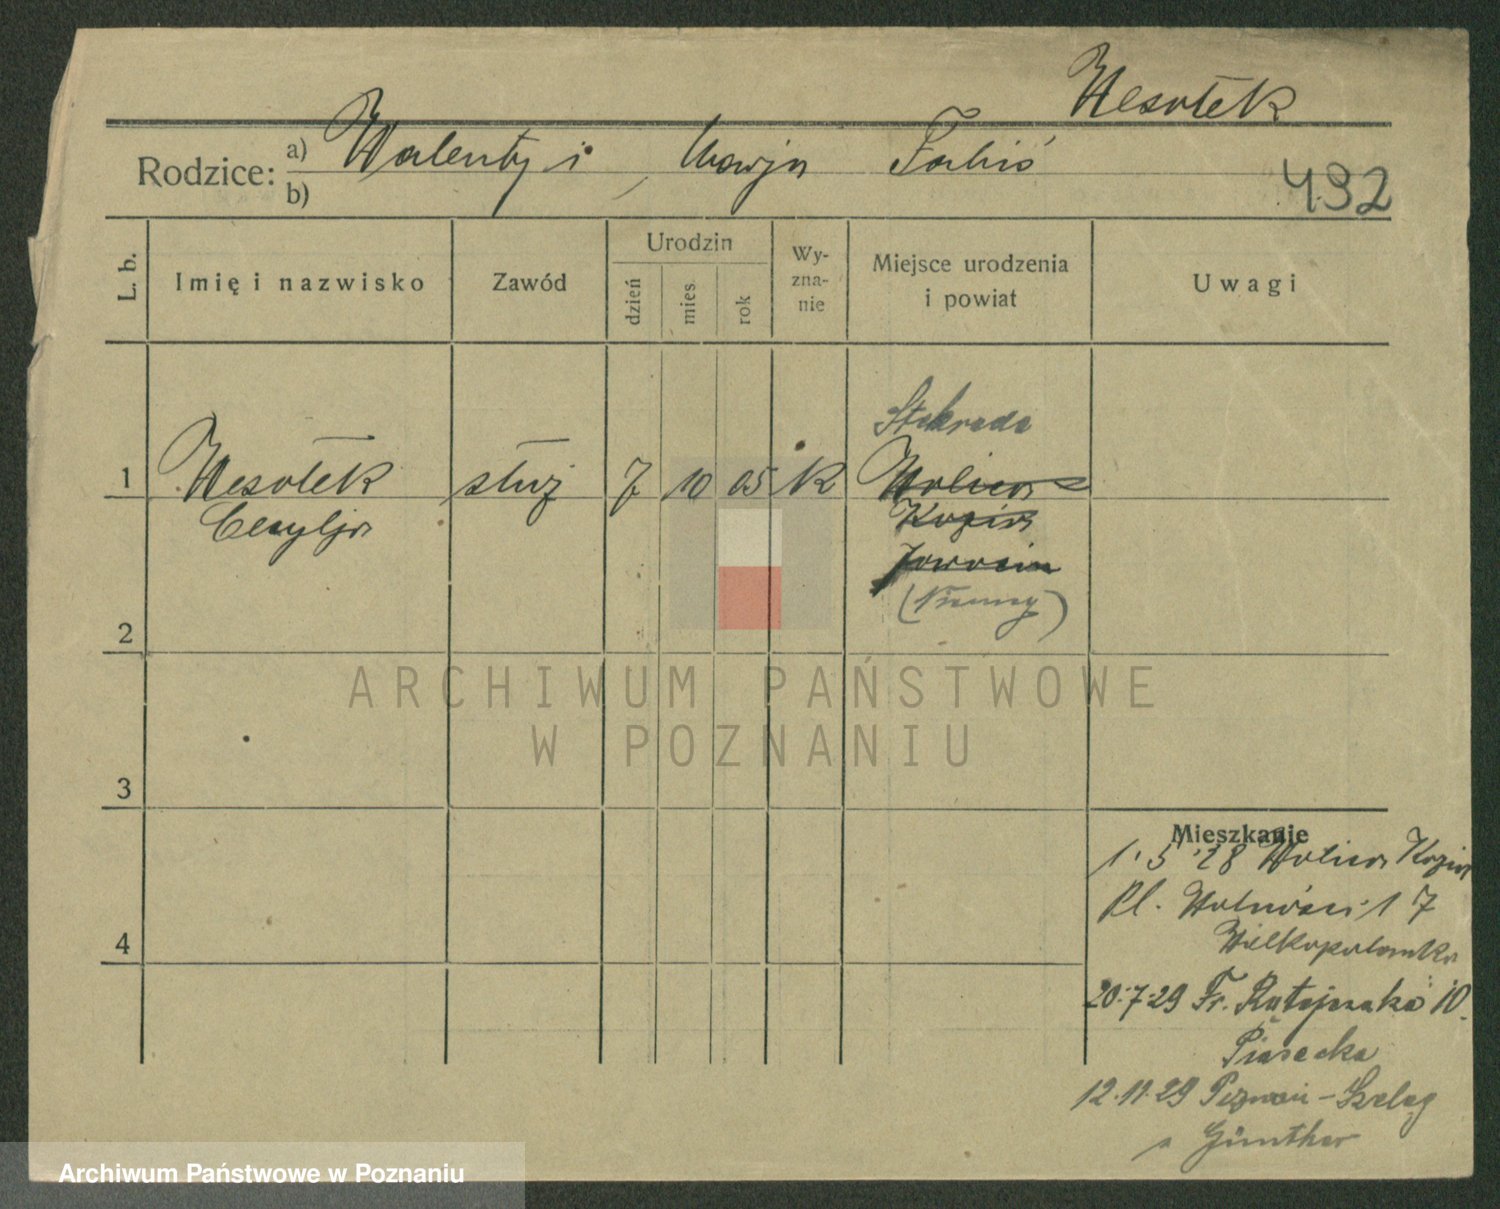 Wesołek
Rodzice: a) Walenty i Marja
b)
432
L. b.
Imię i nazwisko
Zawód
Urodzin
dzień
mies
rok
Wy-
zna-
nie
Miejsce urodzenia
i powiat
Uwagi
1
Wesołek
Cecylja
służ
7
10
05
K
Wolica
Kozia
Jarocin
2
3
4
Mieszkanie
1. 5 28 Wolica Kozia
Pl. Wolności 17
Wielkopolanka
20.7.29 Fr. Ratajczaka 10.
Piasecka
12.11.29 Poznań - Szeląg
Günther
ARCHIWUM PAŃSTWOWE
W POZNANIU
Archiwum Państwowe w Poznaniu